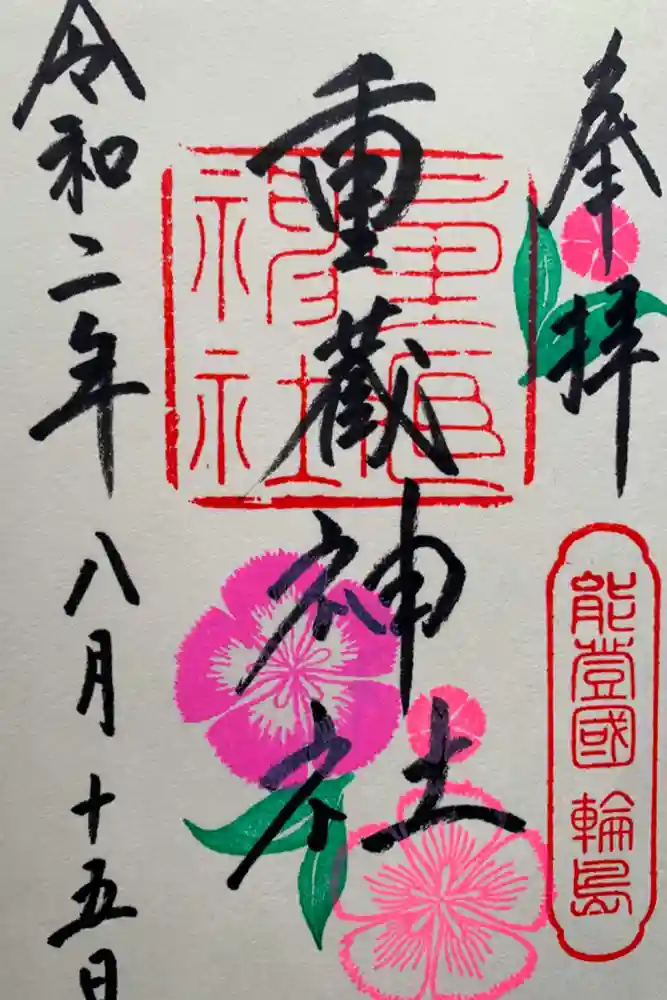 奉拝
能登國 輪島
重蔵神社
重蔵神社
令和二年 八月 十五日